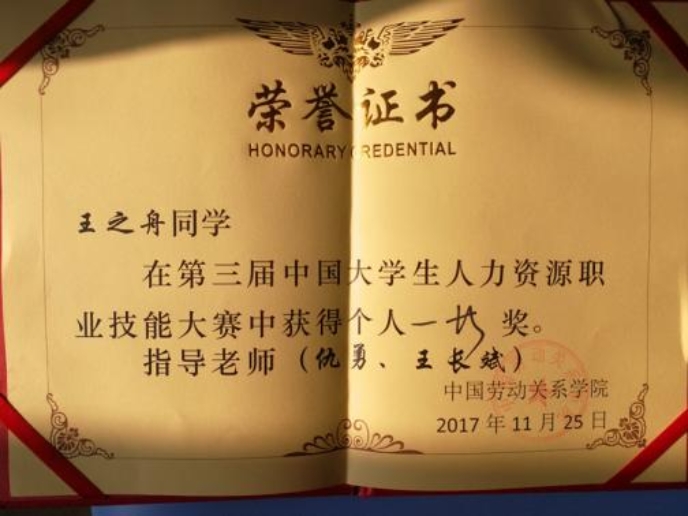 荣誉证书
HONORARY CREDENTIAL
王之舟同学
在第三届中国大学生人力资源职
业技能大赛中获得个人一等奖。
指导老师（仇勇、王长斌）
中国劳动关系学院
2017年11月25日